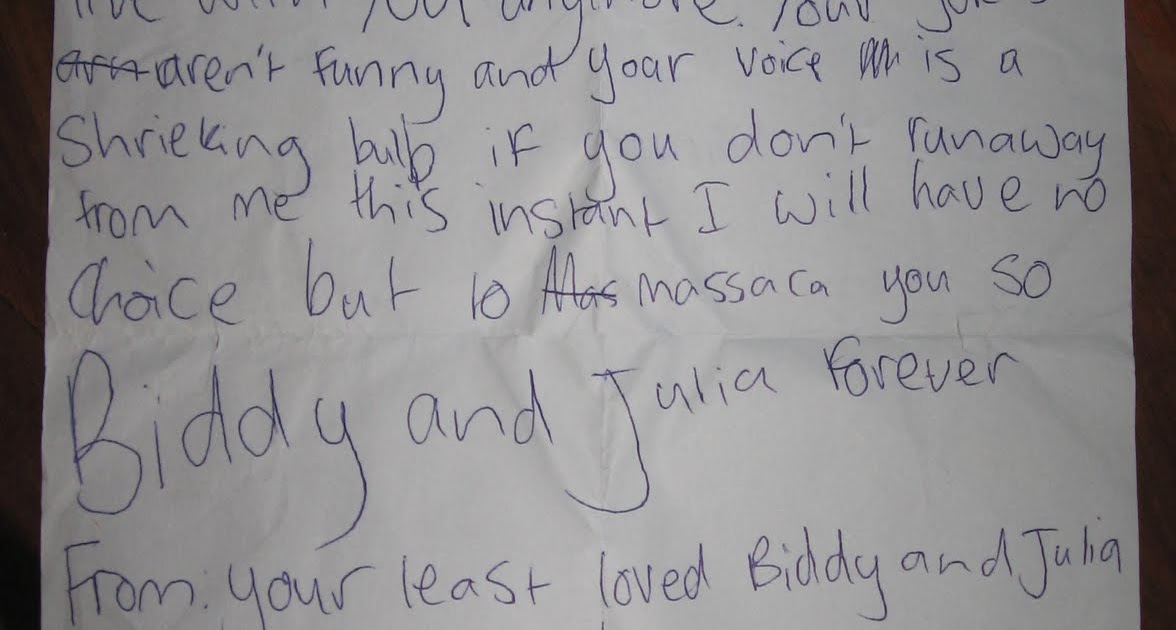 live with you anymore. Your
aren't funny and your voice is a
Shrieking bulb if you don't runaway
from me this instant I will have no
Choice but to massaca you so
Biddy and Julia forever
From: your least loved Biddy and Julia